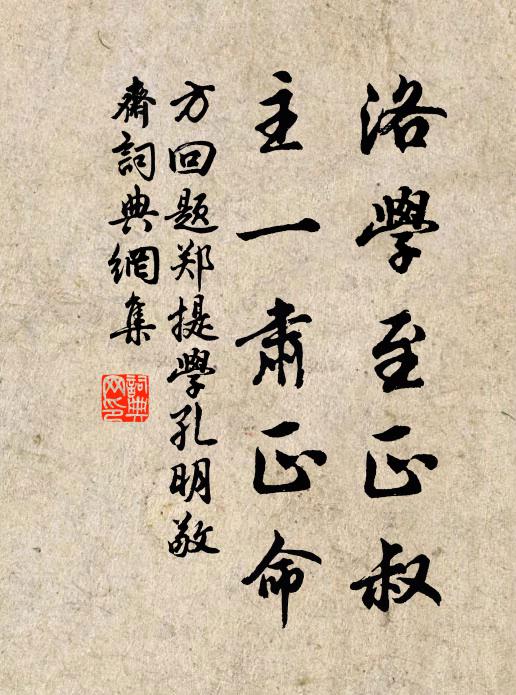 洛學至正叔
主一肅正命
方回题郑提學孔明敬
齋詞典網集
詞典
网印